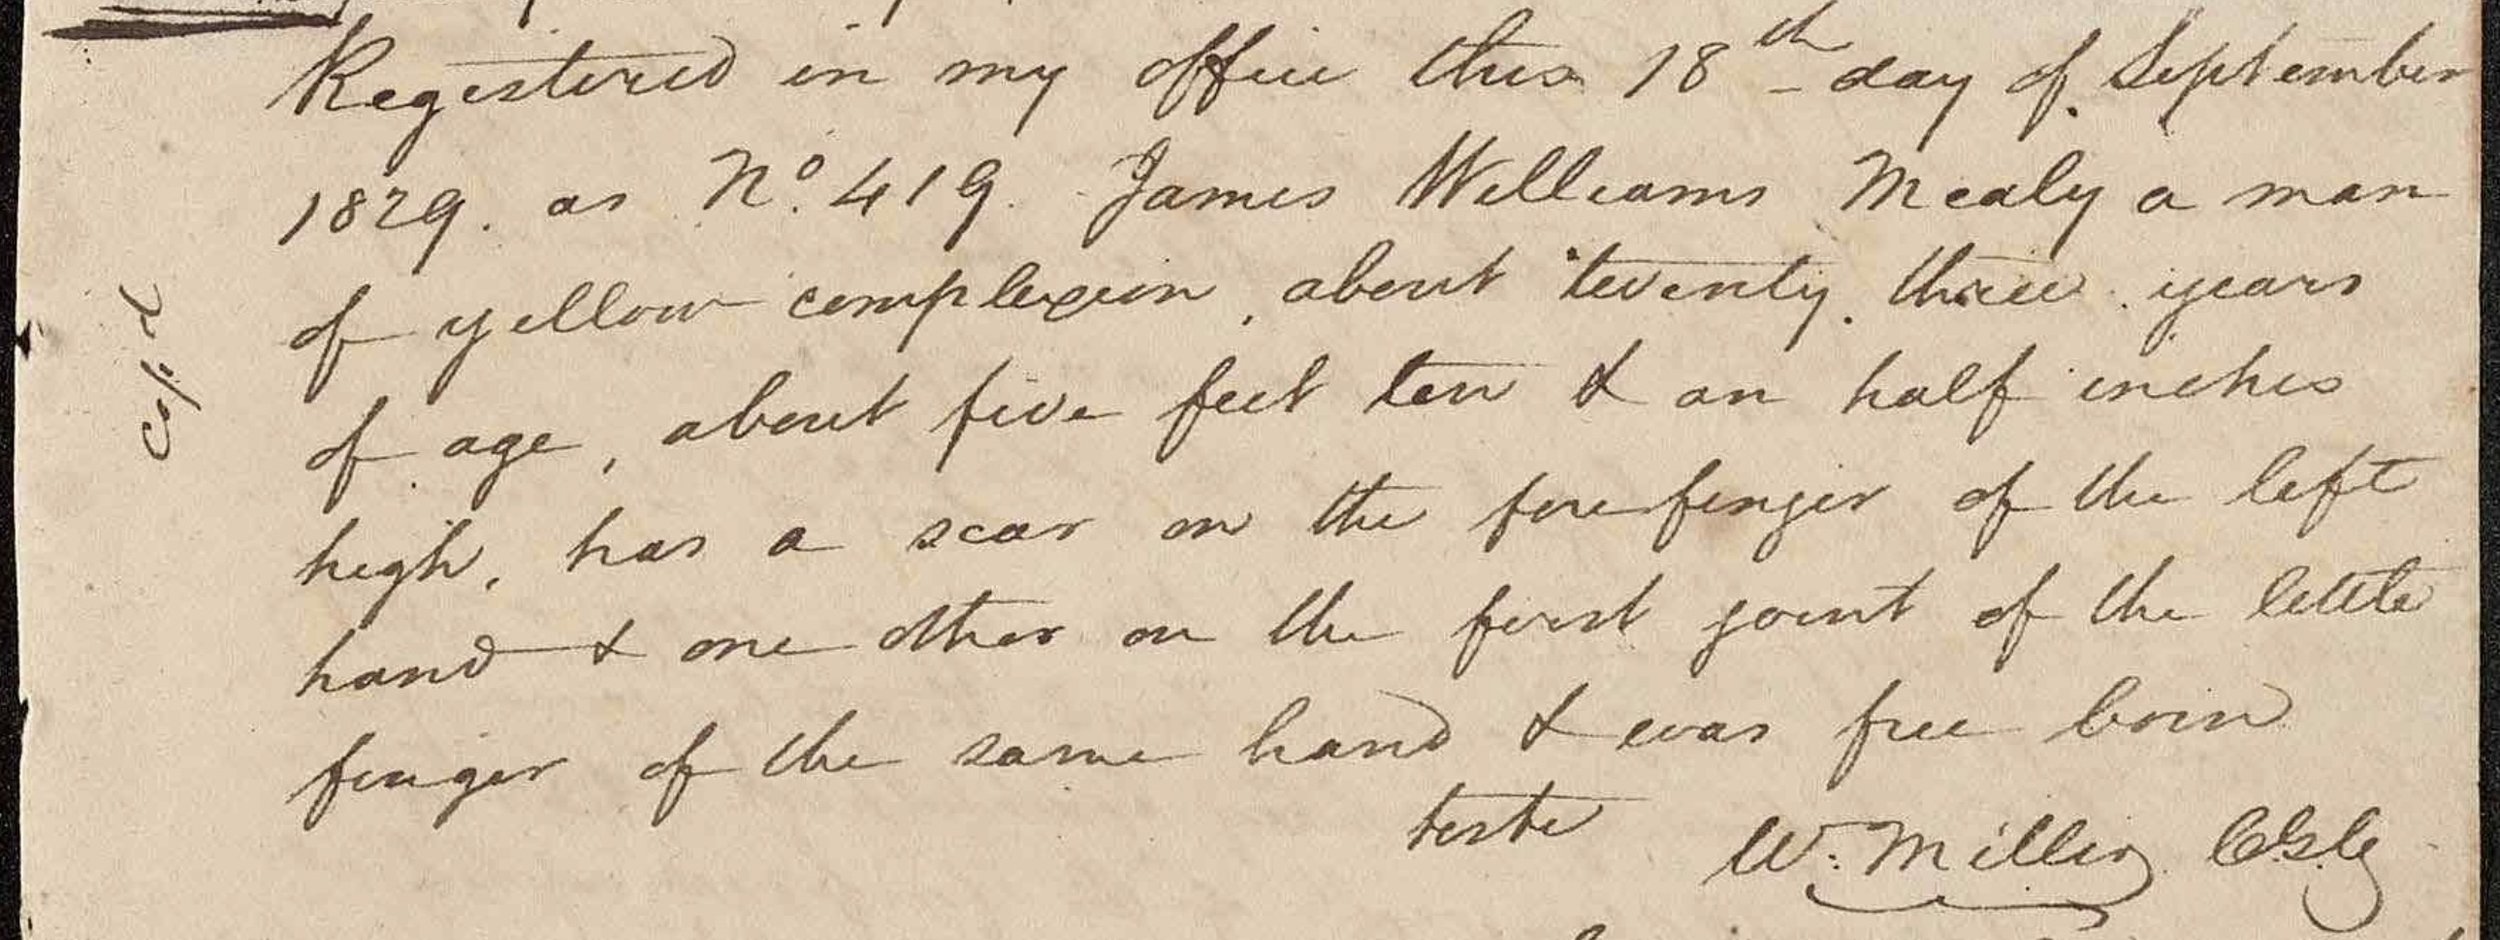 Registered in my office this 18th day of September
1829. as No. 419. James Williams Mealy a man
of yellow complexion, about twenty three years
of age, about five feet ten & an half inches
high, has a scar on the forefinger of the left
hand & one other on the first joint of the little
finger of the same hand & was free born
teste W. Miller